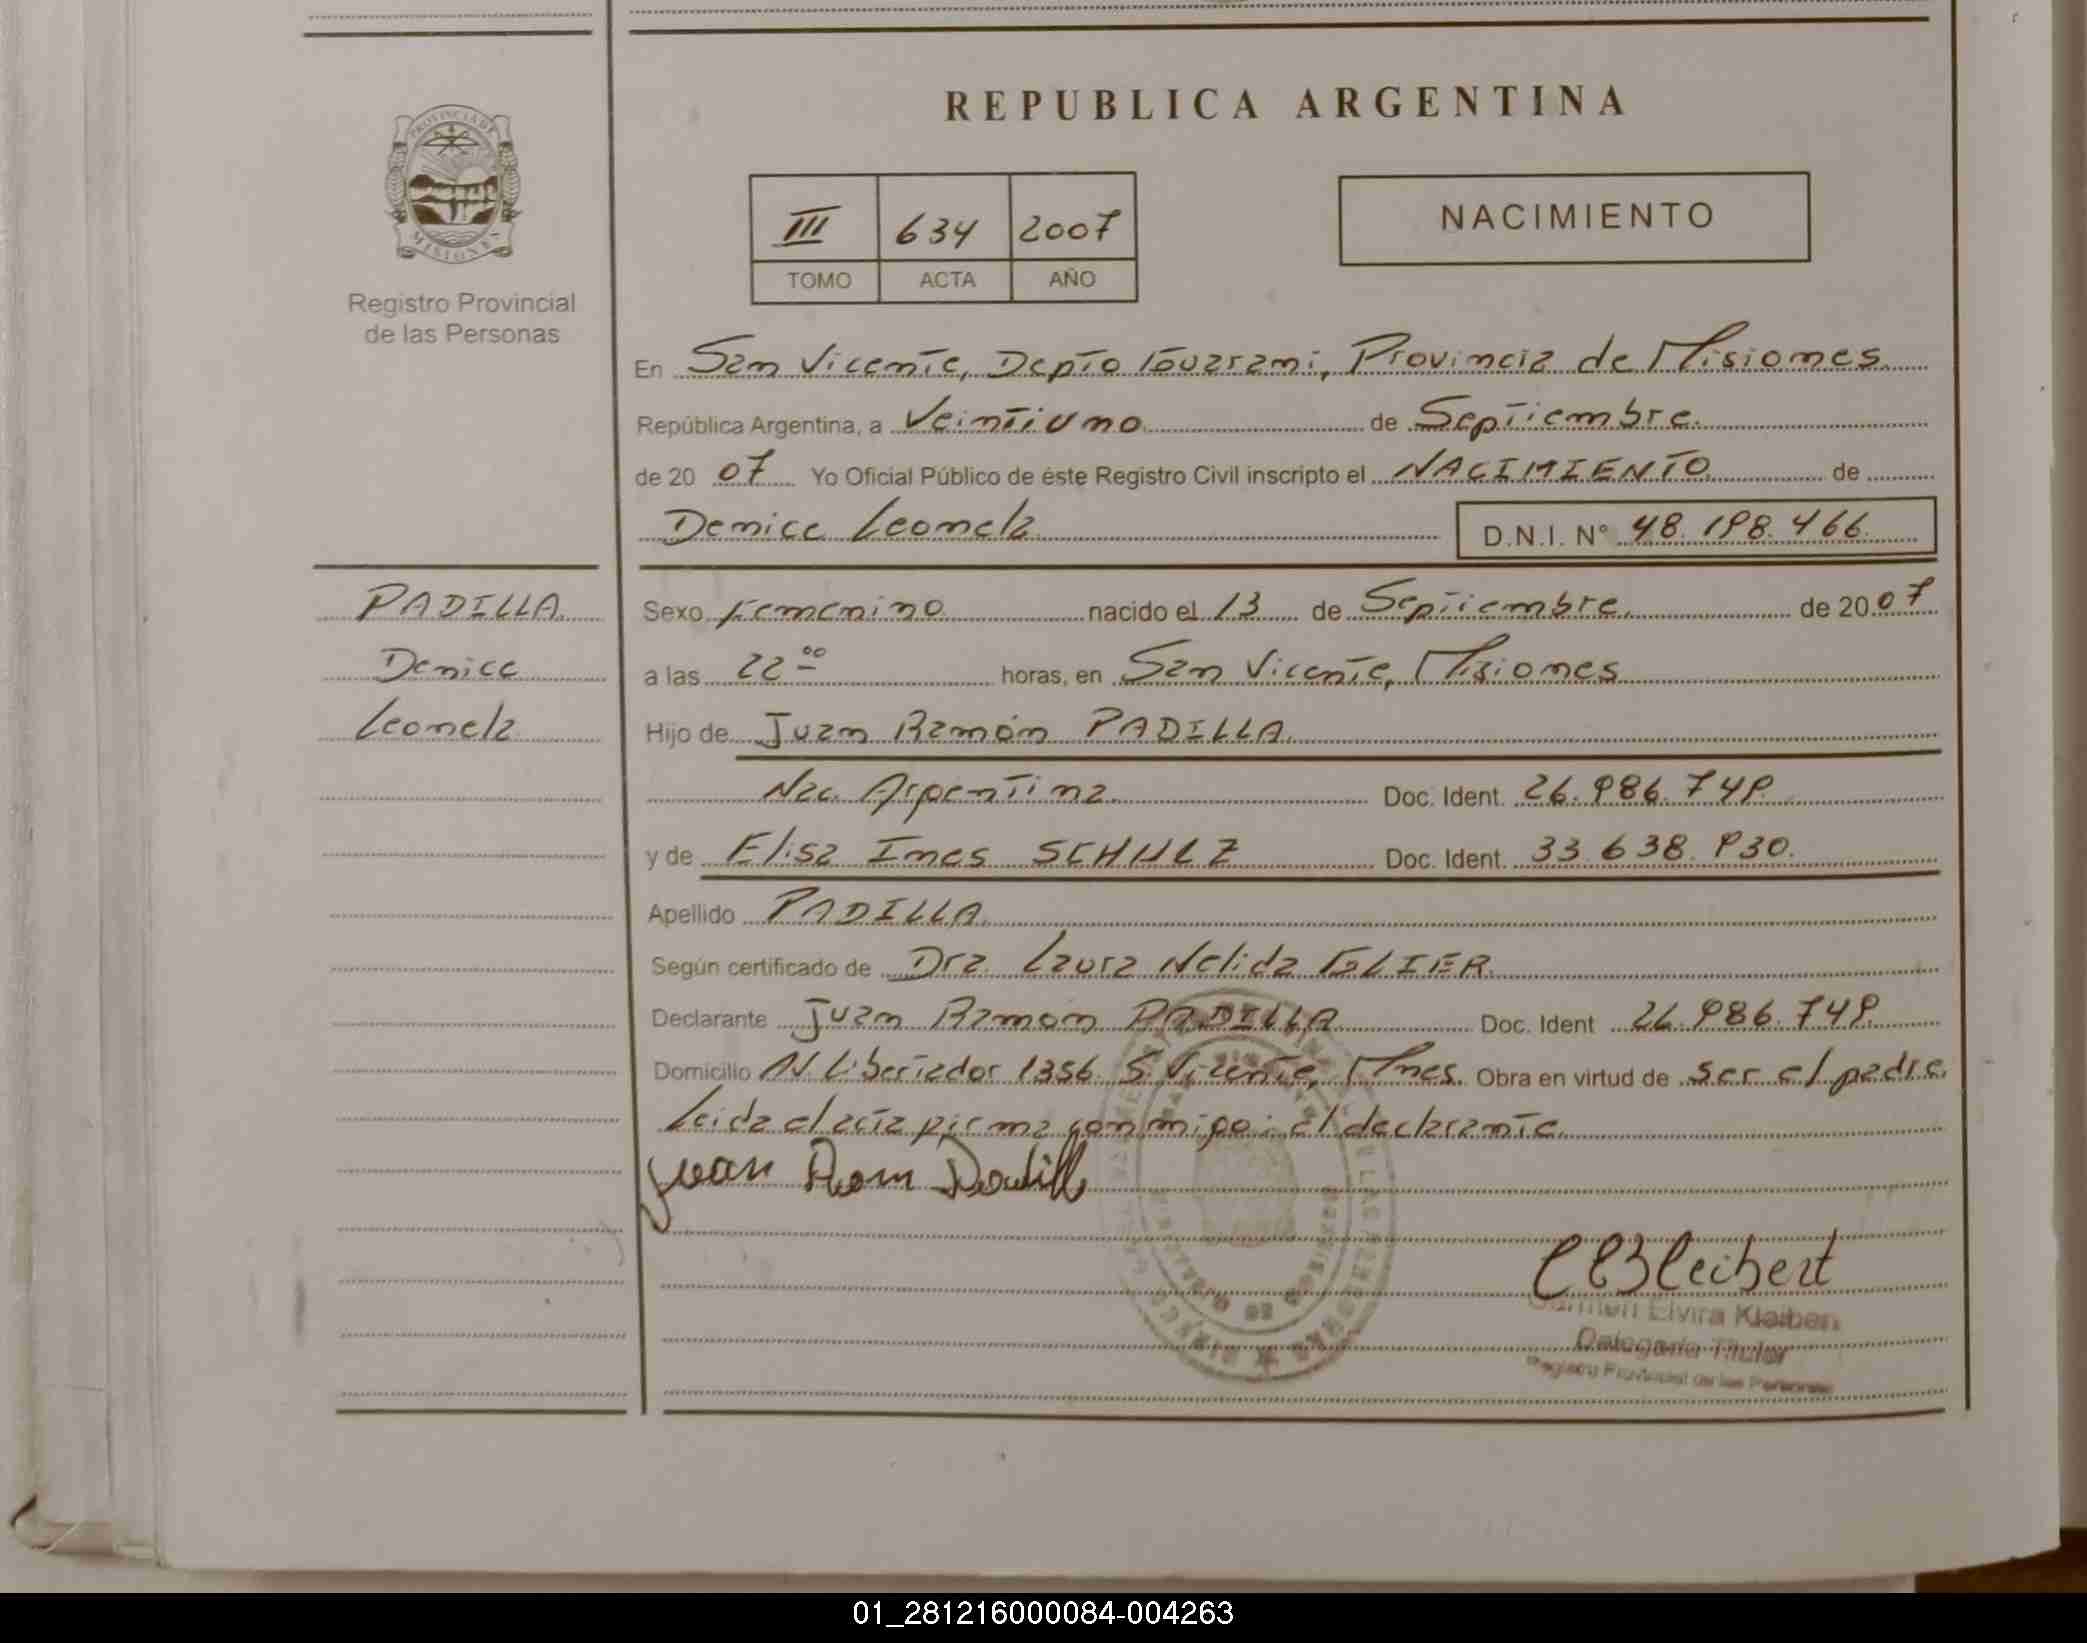 REPUBLICA ARGENTINA
PROVINCIA DE
MISIONES
Registro Provincial
de las Personas
III 634 2007
TOMO ACTA AÑO
NACIMIENTO
En San Vicente, Depto Guarani, Provincia de Misiones
República Argentina, a Veintiuno de Septiembre.
de 20 07 Yo Oficial Público de éste Registro Civil inscripto el NACIMIENTO de
Denice Leonela D.N.I. N° 48.198.466.
PADILLA
Denice
Leonela
Sexo Femenino nacido el 13 de Septiembre. de 20 07
a las 22 00 horas, en San Vicente, Misiones
Hijo de Juan Ramón PADILLA.
Nac. Argentina Doc. Ident. 26.986.749
y de Elisa Ines SCHULZ Doc. Ident. 33.638.930.
Apellido PADILLA.
Según certificado de Dra. Laura Nelida GLIER.
Declarante Juan Ramon PADILLA Doc. Ident 26.986.749
Domicilio AV. Libertador 1356. S. Vicente, Mnes. Obra en virtud de ser el padre.
Leida el acta firma conmigo: el declarante.
Juan Ram Padill
Carmen Elvira Klaibert
Delegada Titular
Registro Provincial de las Personas
01_281216000084-004263